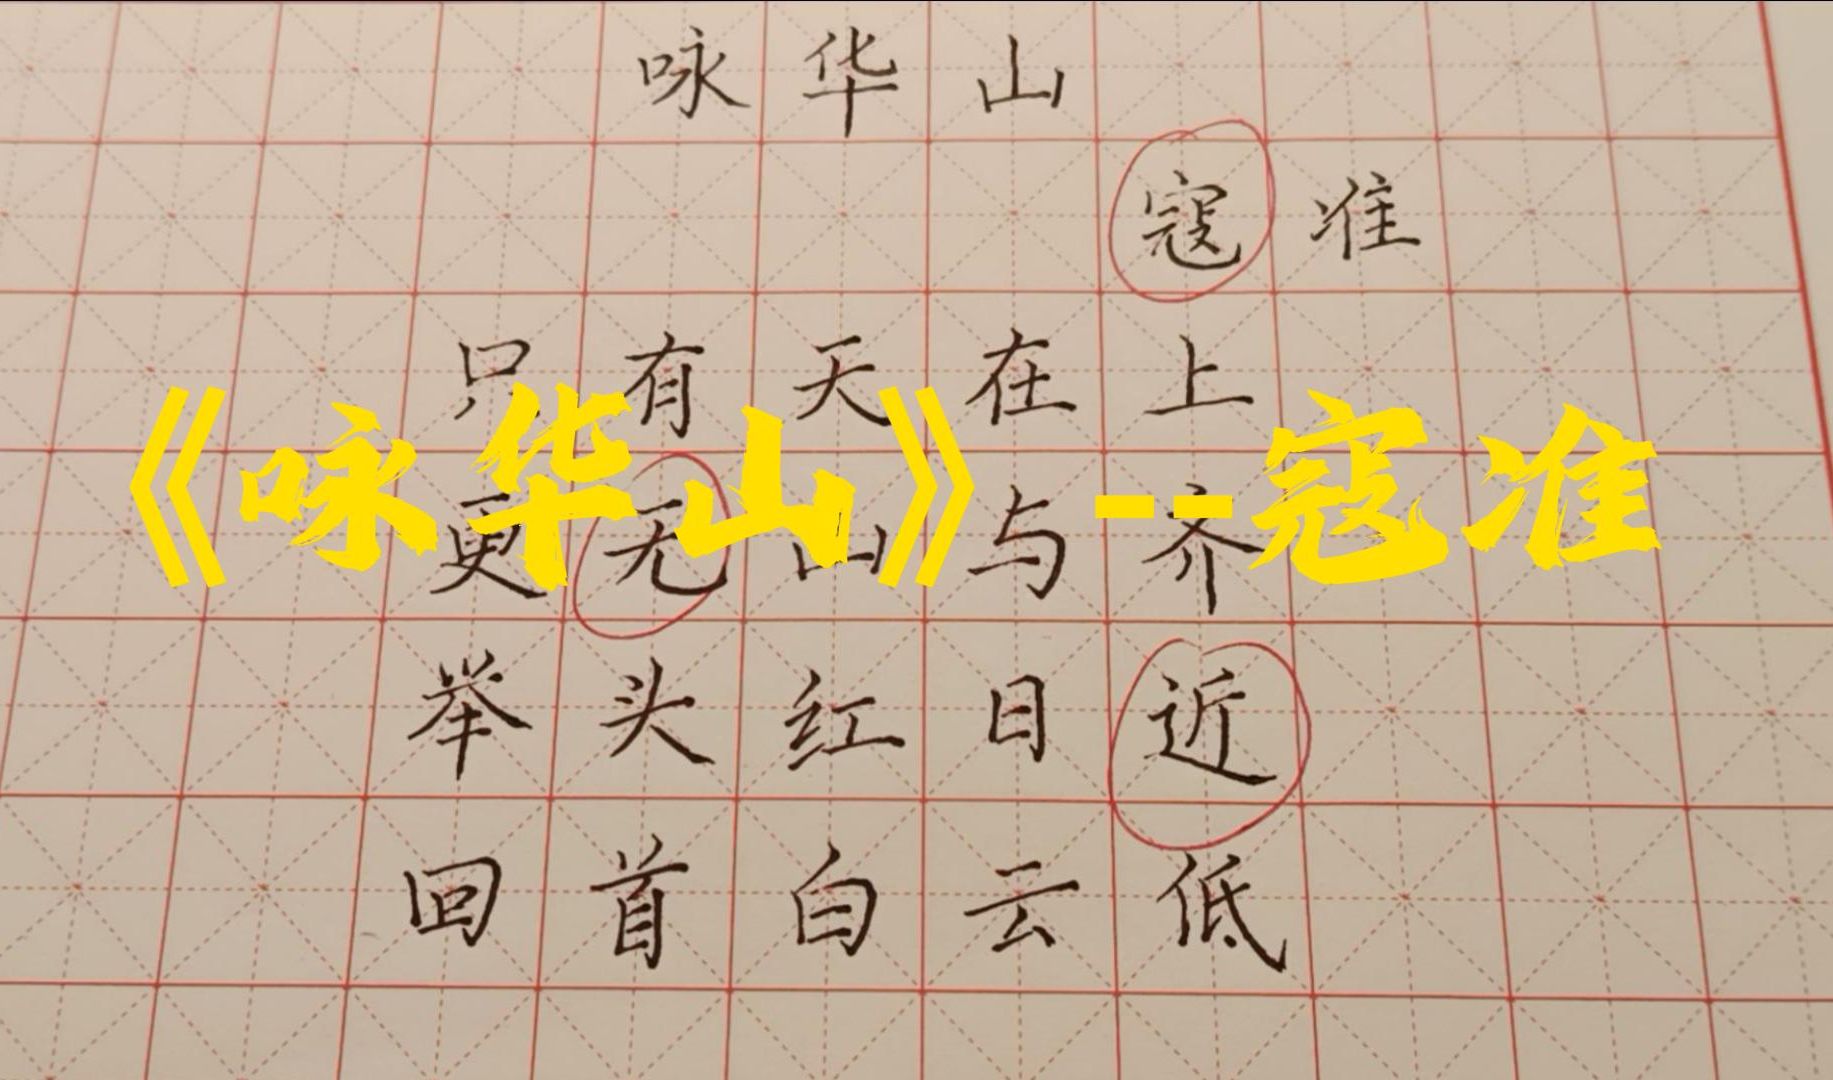 咏华山
寇准
只有天在上
《咏华山》--寇准
更无山与齐
举头红日近
回首白云低